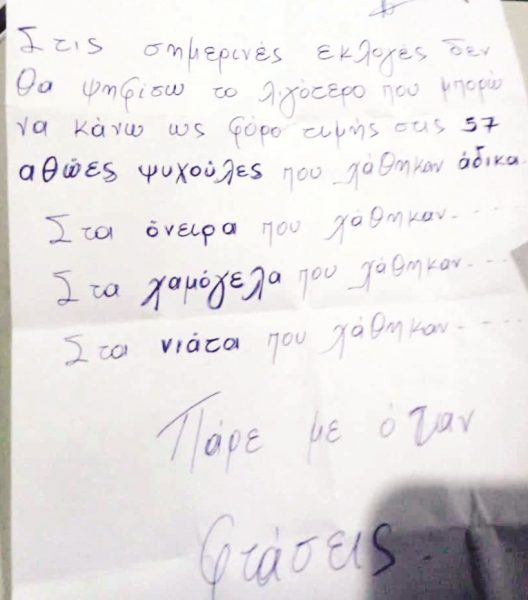 Στις σημερινές εκλογές δεν
θα ψηφίσω το λιγότερο που μπορώ
να κάνω ως φόρο τιμής στις 57
αθώες ψυχούλες που χάθηκαν άδικα.
Στα όνειρα που χάθηκαν.....
Στα χαμόγελα που χάθηκαν....
Στα νιάτα που χάθηκαν.....
Πάρε με όταν
φτάσεις.